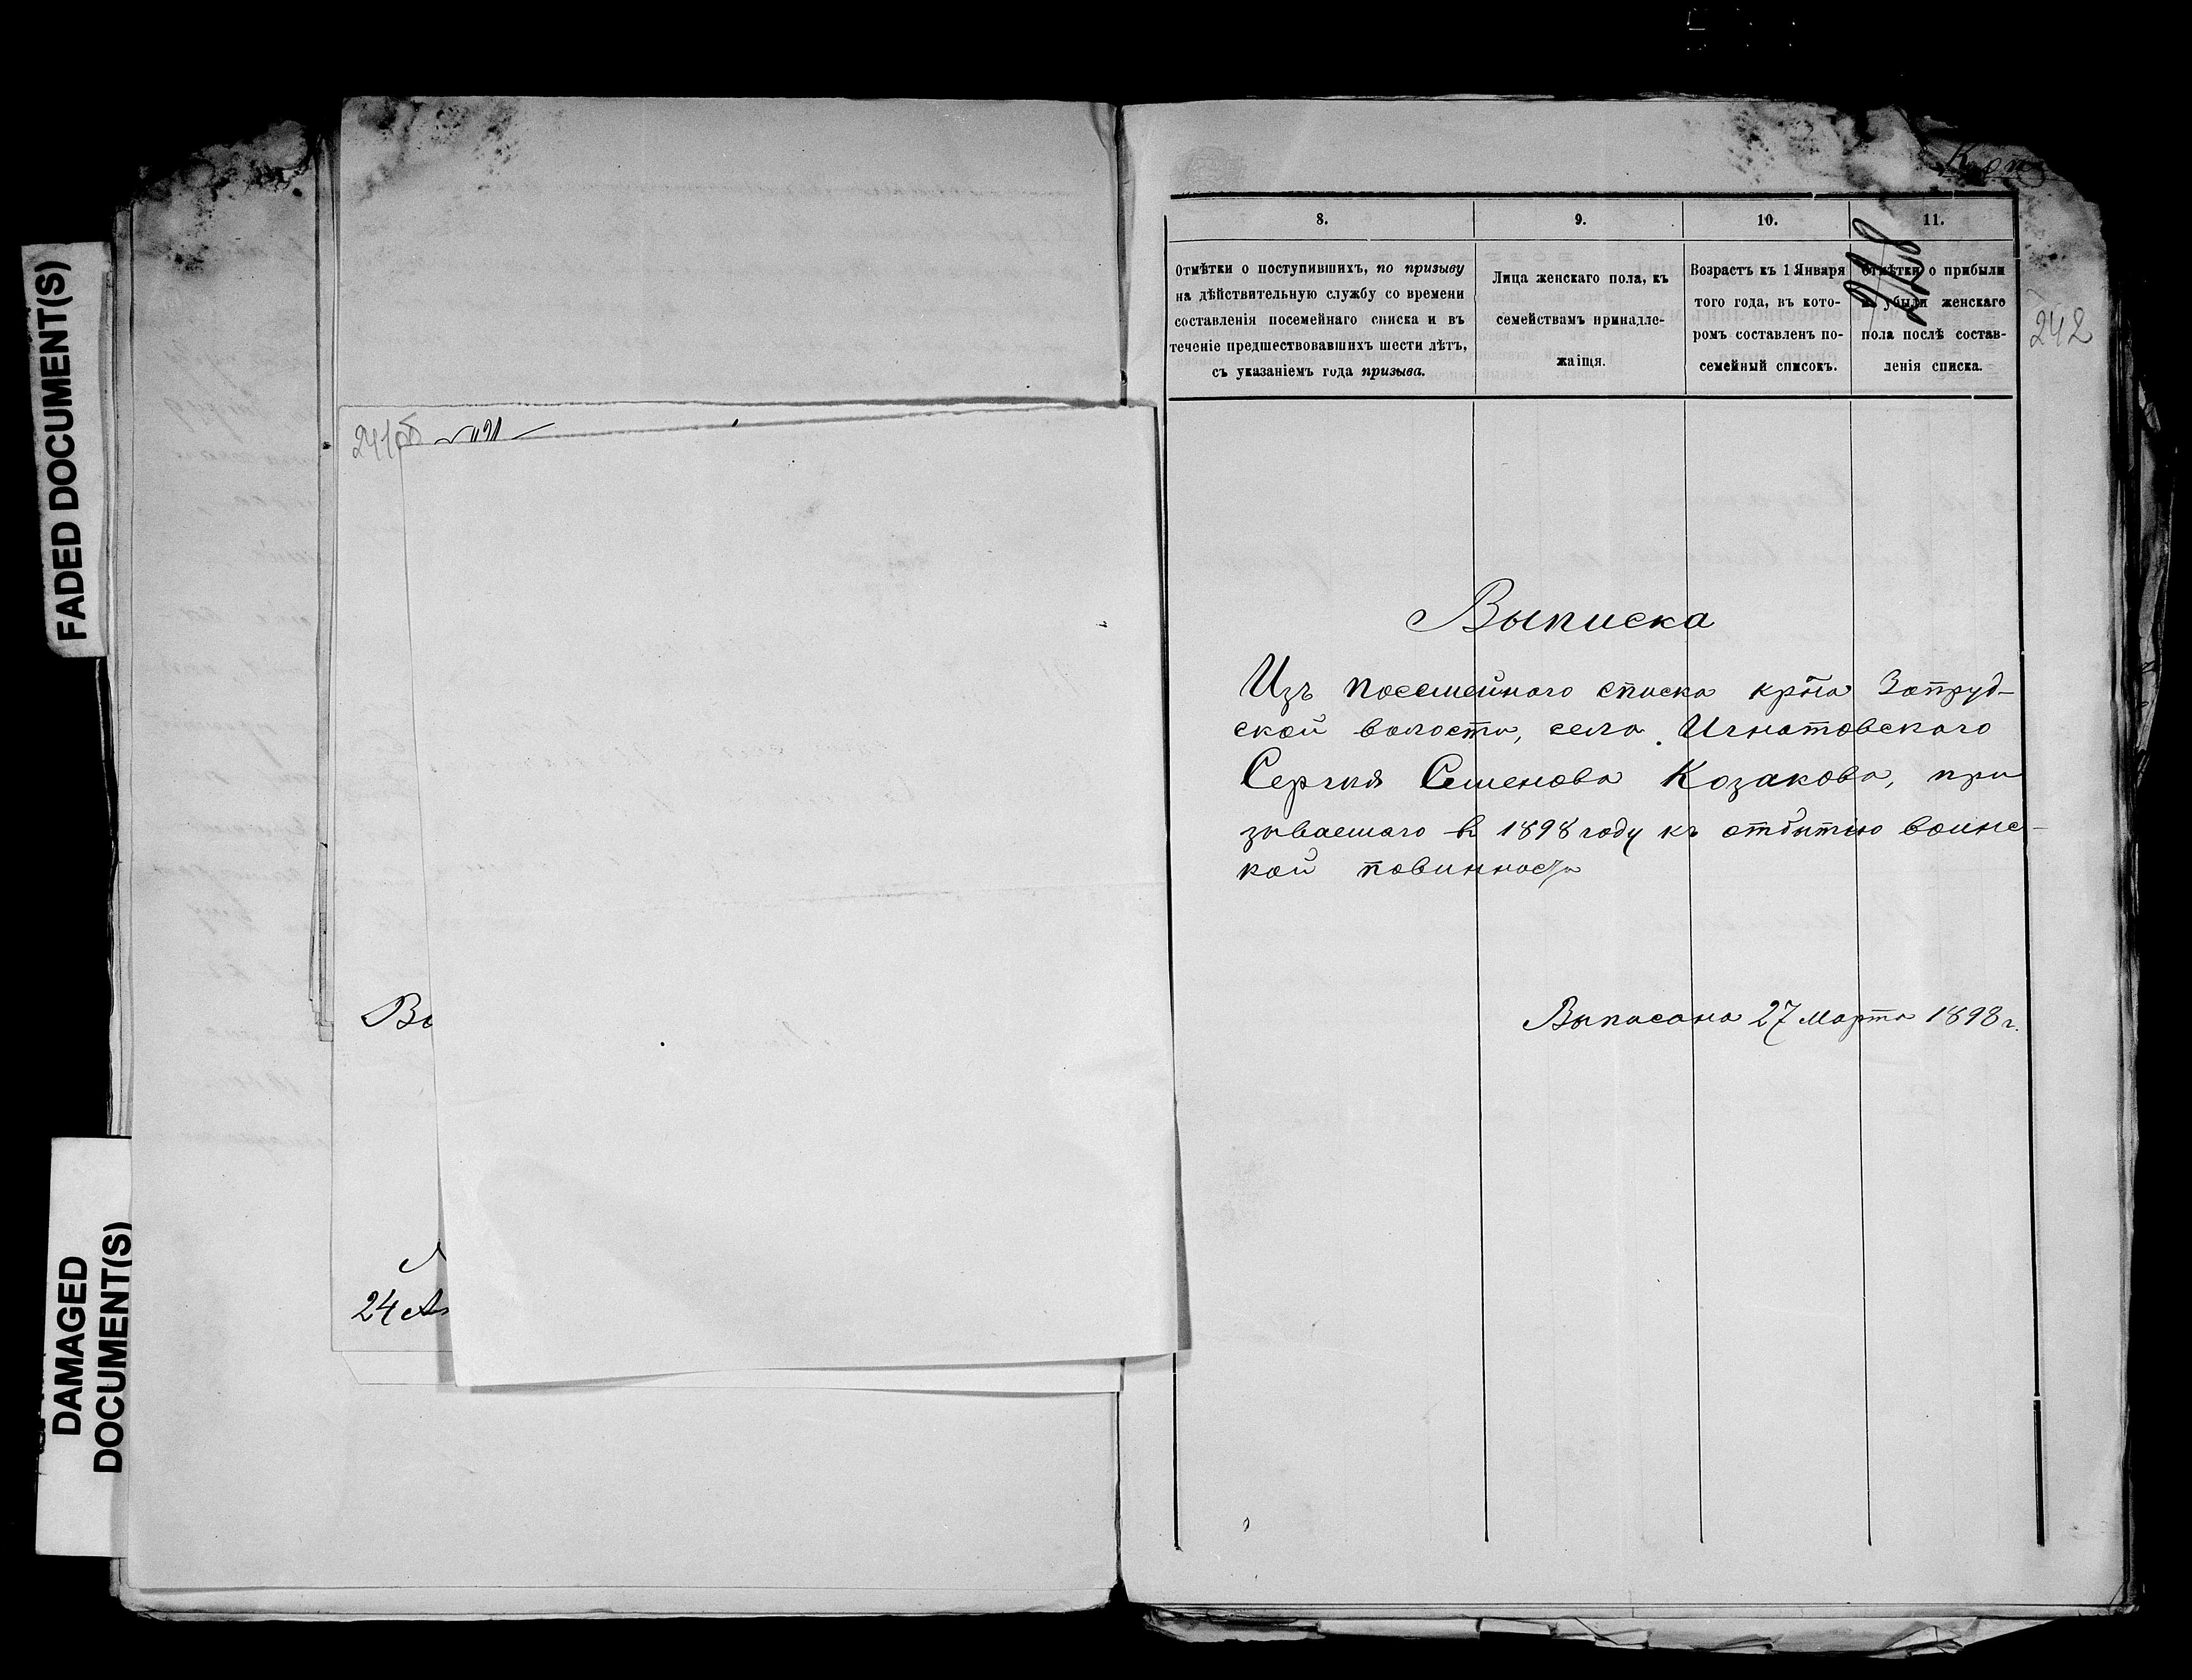 FADED DOCUMENT(S)
DAMAGED
DOCUMENT(S)
241об
24
Коп
228
242
8.
Отмѣтки о поступившихъ, по призыву
на дѣйствительную службу со времени
составленія посемейнаго списка и въ
теченіе предшествовавшихъ шести лѣтъ,
съ указаніемъ года призыва.
9.
Лица женскаго пола, къ
семействамъ принадле-
жащія.
10.
Возрастъ къ 1 Января
того года, въ кото-
ромъ составленъ по-
семейный списокъ.
11.
Отмѣтки о прибыли
и убыли женскаго
пола послѣ состав-
ленія списка.
Выписка
Изъ посемейнаго списка кр-на Запруд-
ской волости, села Игнатовскаго
Сергѣя Семенова Козакова, при
зываемаго въ 1898 году къ отбытію воинс-
кой повинности
Выписана 27 марта 1898 г.